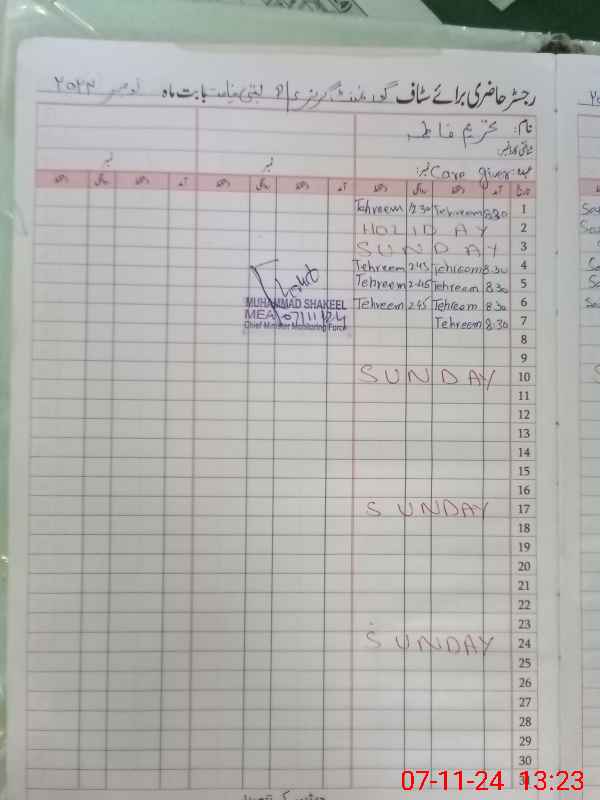 رجسٹر حاضری برائے سٹاف گورنمنٹ گرلز بابت ماہ نومبر ۲۰۲۴
نام: تحریم فاطمہ
شناختی کارڈ نمبر:
عہدہ Care giver نمبر: نمبر نمبر
تاریخ آمد دستخط روانگی دستخط آمد دستخط روانگی دستخط آمد دستخط روانگی دستخط
1 8:30 Tehreem 12:30 Tehreem
2 HOLIDAY
3 SUNDAY
4 8:30 Tehreem 2:45 Tehreem
5 8:30 Tehreem 2:45 Tehreem
6 8:30 Tehreem 2:45 Tehreem
7 8:30 Tehreem
MUHAMMAD SHAKEEL
MEA 07/11/24
Chief Minister Monitoring Force
8
9
10 SUNDAY
11
12
13
14
15
16
17 SUNDAY
18
19
20
21
22
23
24 SUNDAY
25
26
27
28
29
30
31
07-11-24 13:23